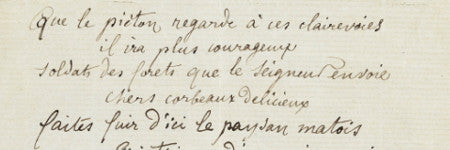 Que le piéton regarde à ces clairevoies
il ira plus courageux
soldats des forets que le Seigneur envoie
chers corbeaux delicieux
faites fuir d'ici le paysan matois